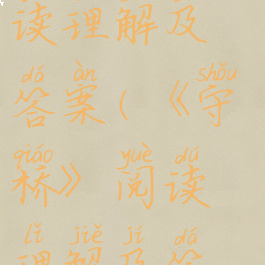 读理解及
dá àn shǒu
答案(《守
qiáo yuè dú
桥》阅读
lǐ jiě jí dá
理解及答